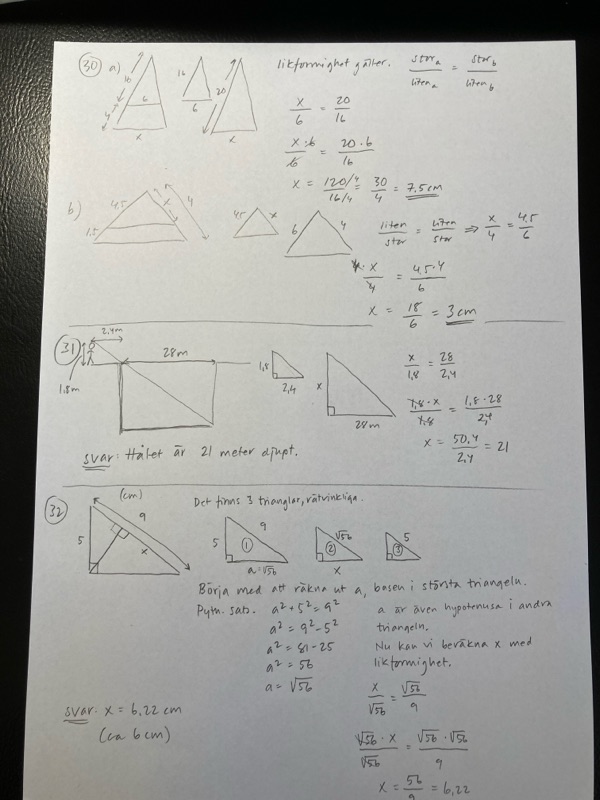 30 a) 16 4 6 x
16 6 20 x
likformighet gäller. stor a / liten a = stor b / liten b
x/6 = 20/16
x·6/6 = 20·6/16
x = 120/4 / 16/4 = 30/4 = 7,5 cm
b) 4,5 1,5 x 4
4,5 x 6 4
liten/stor = liten/stor ⇒ x/4 = 4,5/6
4·x/4 = 4,5·4/6
x = 18/6 = 3 cm
31 2,4m 28m 1,8m
1,8 2,4 x 28m
x/1,8 = 28/2,4
1,8·x/1,8 = 1,8·28/2,4
x = 50,4/2,4 = 21
svar: Hålet är 21 meter djupt.
32 (cm) 5 9 x
Det finns 3 trianglar, rätvinkliga.
5 9 ① a=√56
√56 ② x
5 ③
Börja med att räkna ut a, basen i största triangeln.
Pyth. sats. a² + 5² = 9²
a² = 9² - 5²
a² = 81 - 25
a² = 56
a = √56
a är även hypotenusa i andra
triangeln.
Nu kan vi beräkna x med
likformighet.
x/√56 = √56/9
√56·x/√56 = √56·√56/9
x = 56/9 = 6,22
svar: x = 6,22 cm
(ca 6 cm)